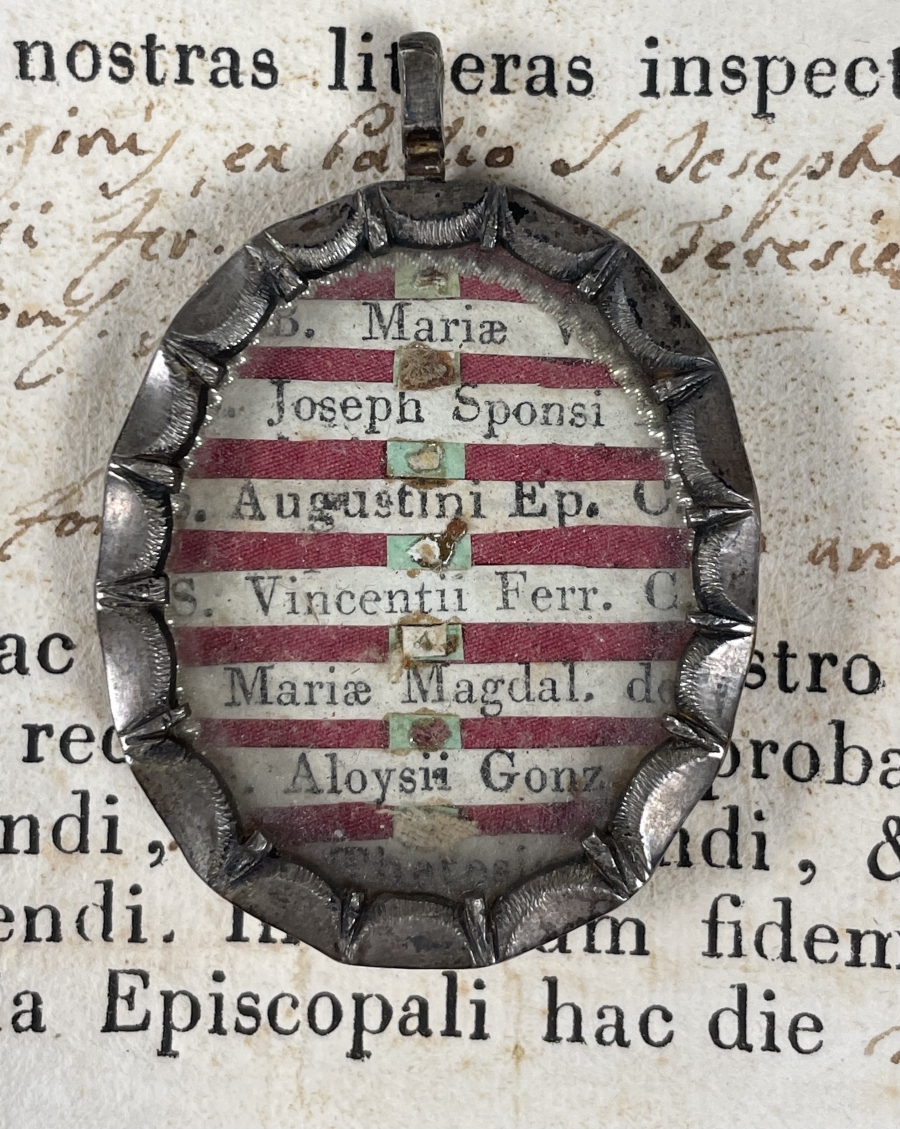 nostras litteras inspect
ex Pallio S. Josephi
Fer. Teresiæ
B. Mariæ V
Joseph Sponsi
S. Augustini Ep. C
S. Vincentii Ferr. C
Mariæ Magdal. de
Aloysii Gonz
Theresi
ac stro
rec proba
ndi, ndi, &
endi. In am fidem
a Episcopali hac die